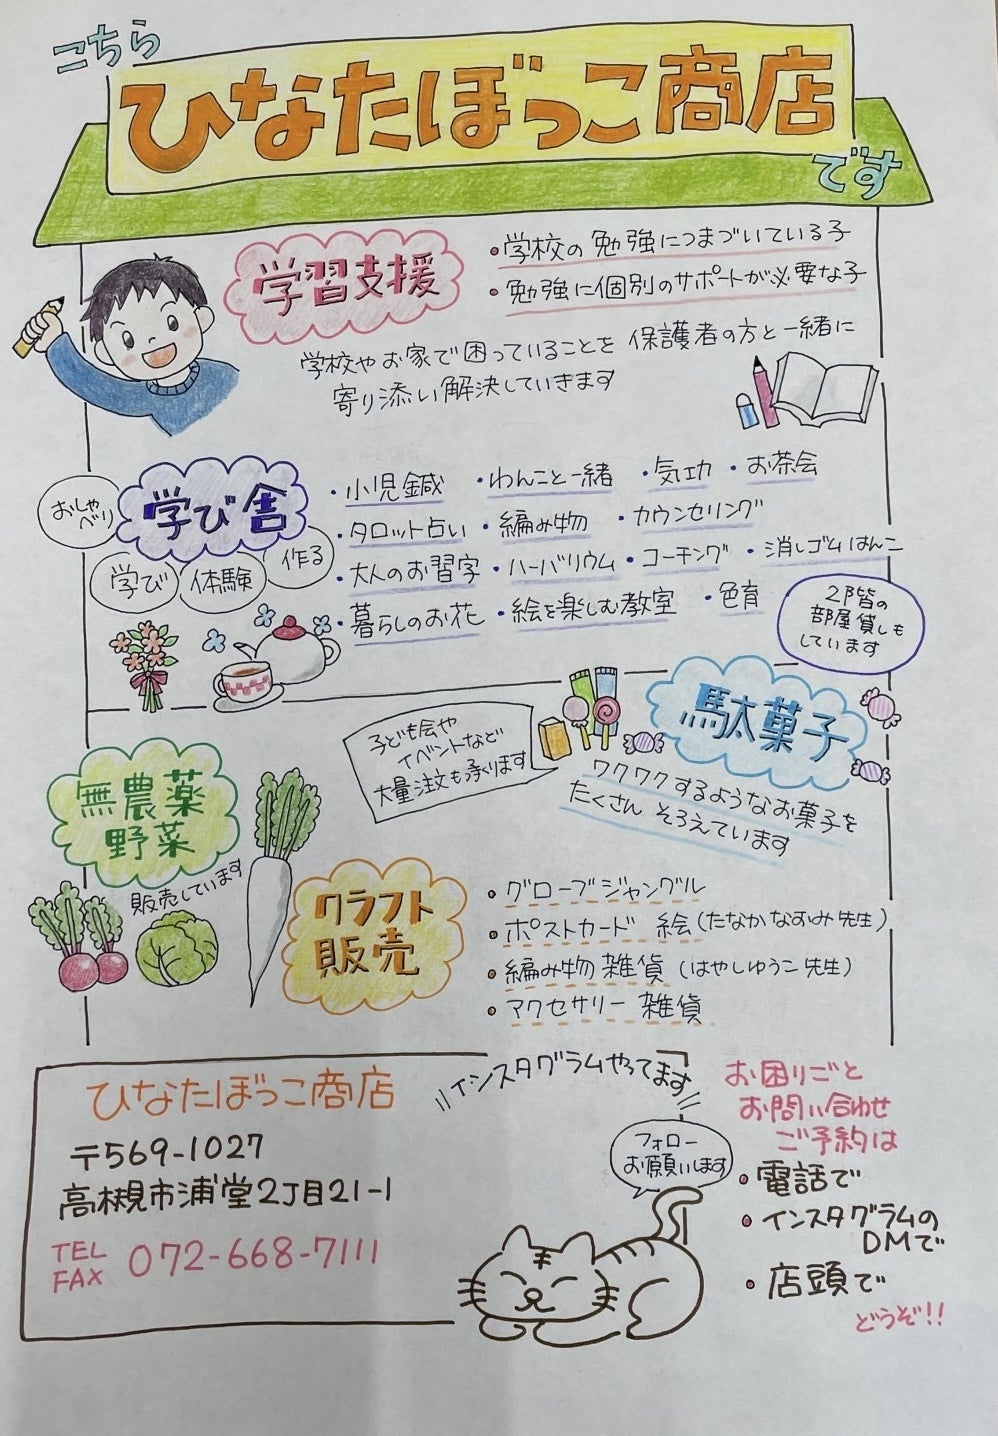 こちら
ひなたぼっこ商店
です
学習支援
・学校の勉強につまづいている子
・勉強に個別のサポートが必要な子
学校やお家で困っていることを 保護者の方と一緒に
寄り添い解決していきます
おしゃ
べり
学び舎
学び
体験
作る
・小児鍼 ・わんこと一緒 ・気功 ・お茶会
・タロット占い ・編み物 ・カウンセリング
・大人のお習字 ・ハーバリウム ・コーチング ・消しゴムはんこ
・暮らしのお花 ・絵を楽しむ教室 ・色育
2階の
部屋貸しも
しています
駄菓子
子ども会や
イベントなど
大量注文も承ります
ワクワクするようなお菓子を
たくさん そろえています
無農薬
野菜
販売しています
クラフト
販売
・グローブジャングル
・ポストカード 絵(たなかなおみ先生)
・編み物 雑貨 (はやしゆうこ先生)
・アクセサリー 雑貨
ひなたぼっこ商店
〒569-1027
高槻市浦堂2丁目21-1
TEL
FAX 072-668-7111
インスタグラムやってます
フォロー
お願いします
お困りごと
お問い合わせ
ご予約は
・電話で
・インスタグラムの
DMで
・店頭で
どうぞ!!